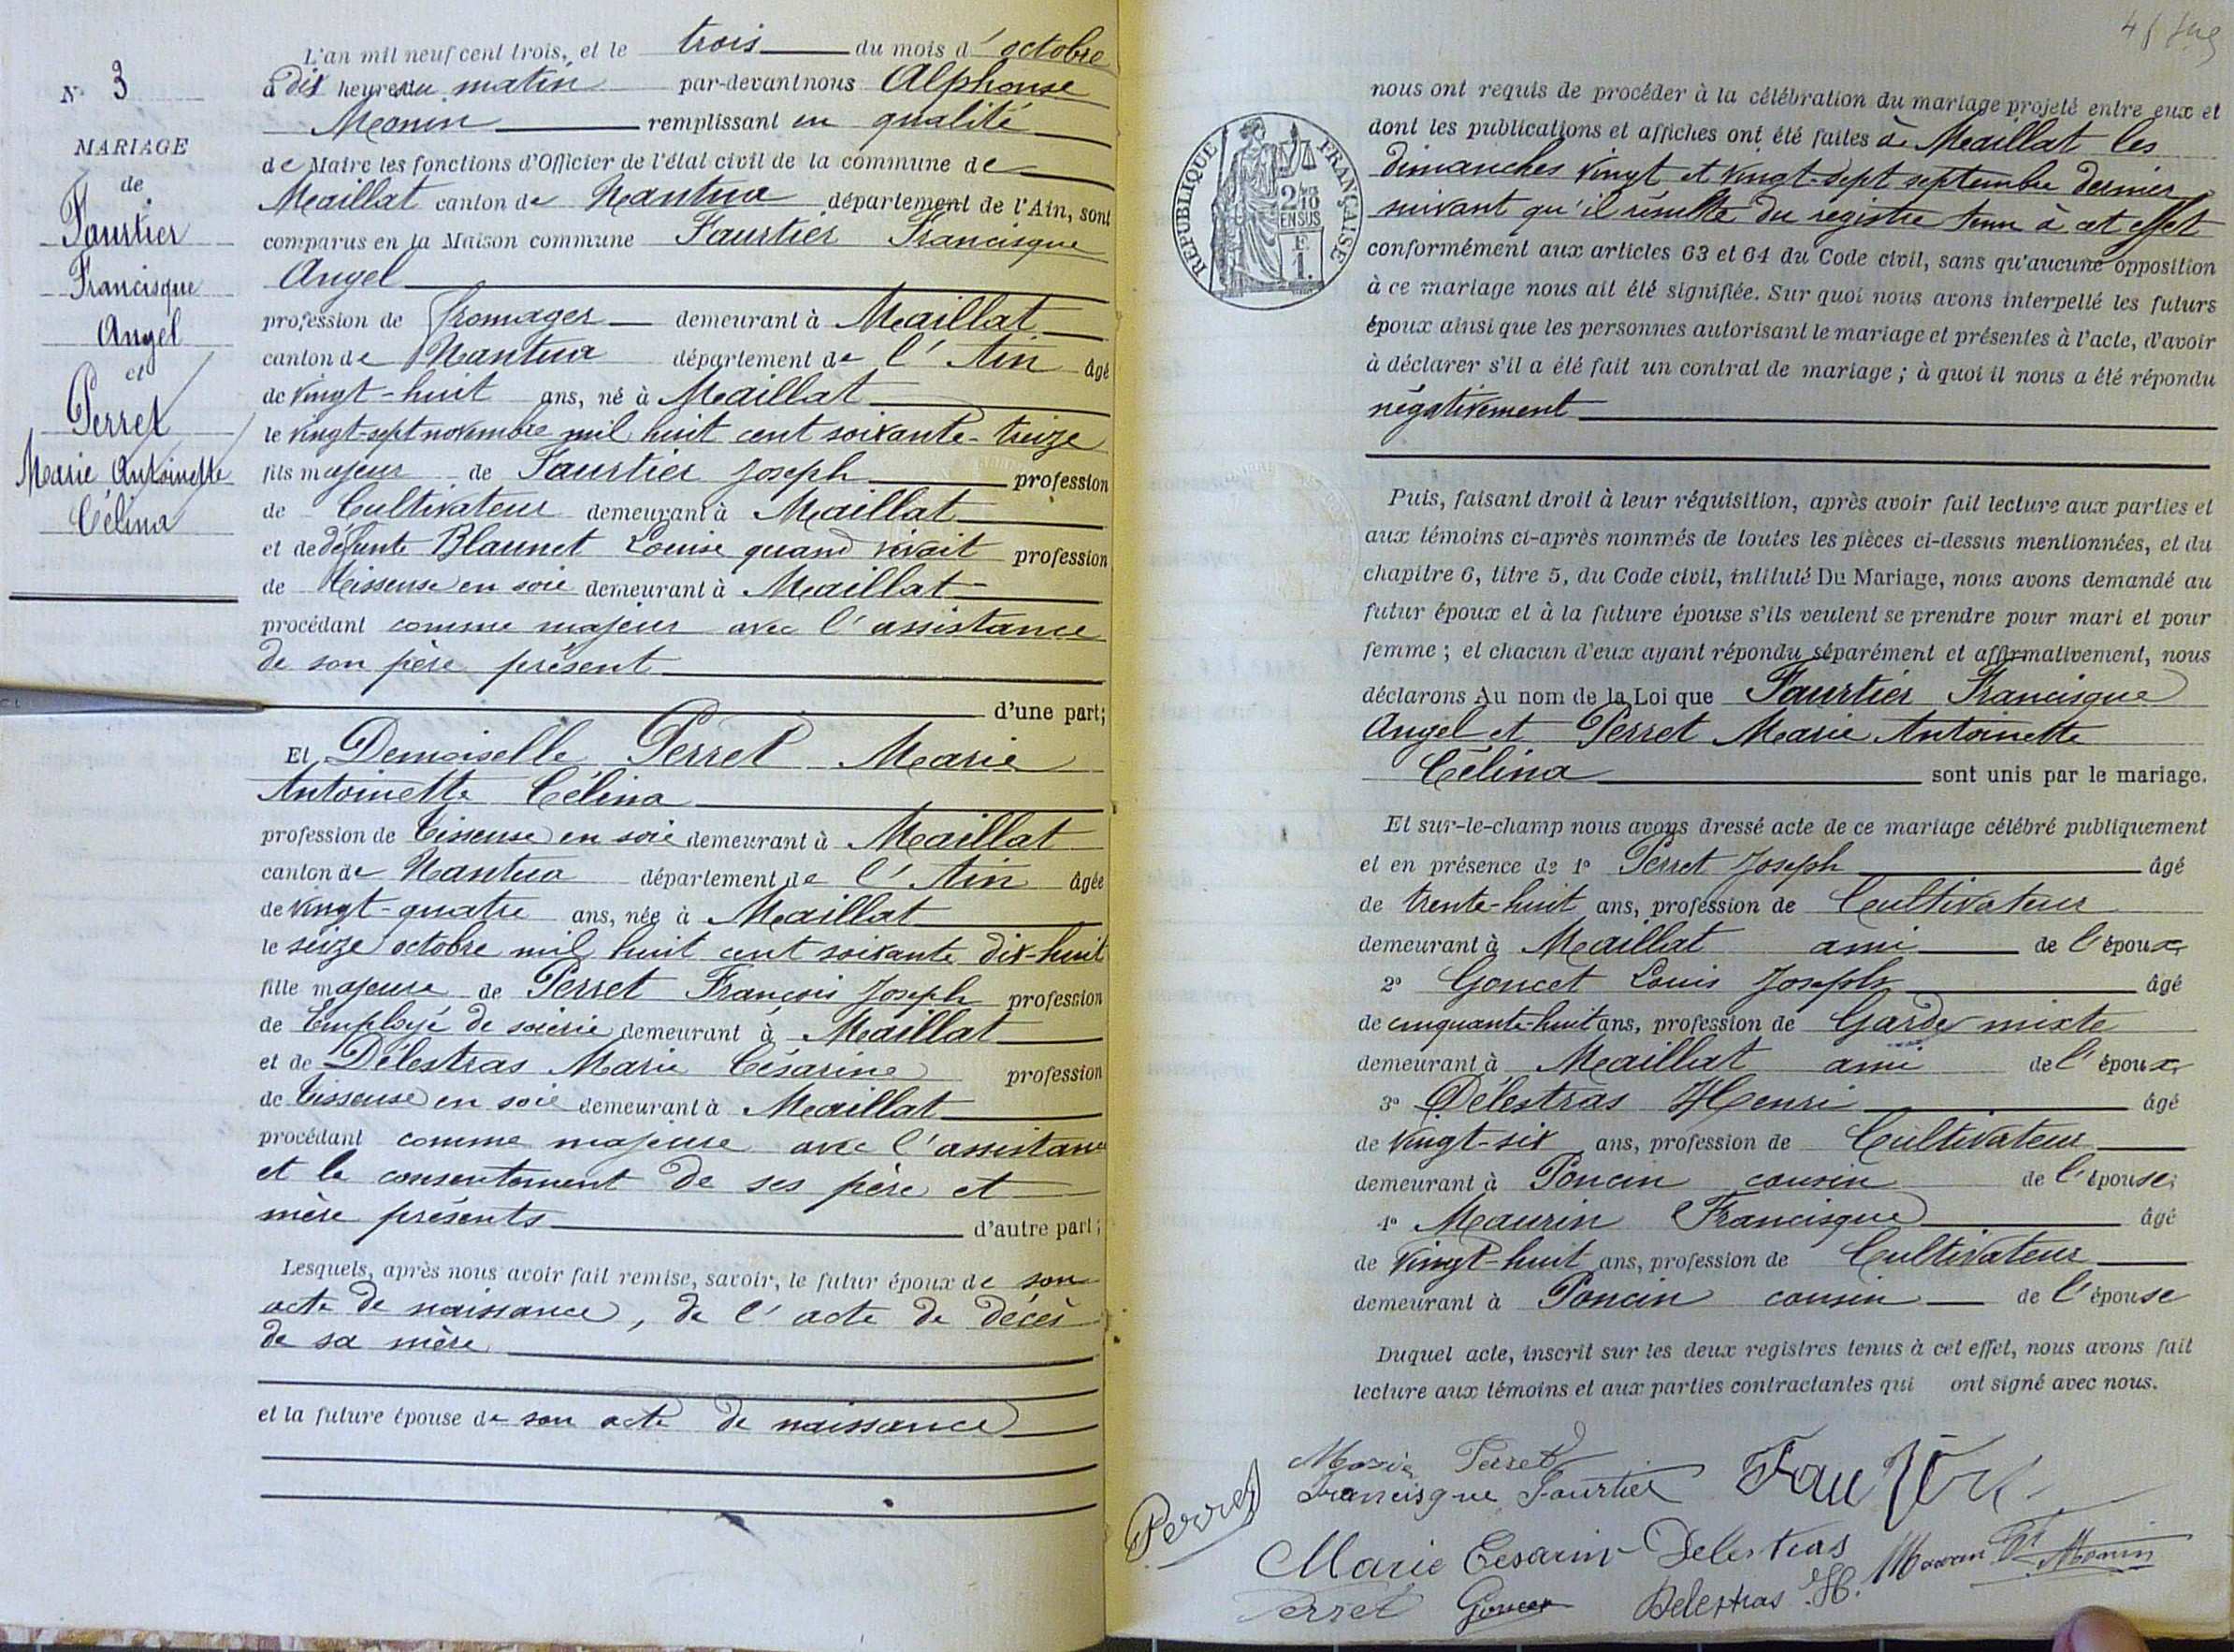 N° 3
MARIAGE
de
Faurtier
Francisque
Angel
et
Perret
Marie Antoinette
Célina
L'an mil neuf cent trois, et le trois du mois d'octobre
à dix heures du matin par-devant nous Alphonse
Monin remplissant en qualité
de Maire les fonctions d'Officier de l'état civil de la commune de
Maillat canton de Nantua département de l'Ain, sont
comparus en la Maison commune Faurtier Francisque
Angel
profession de fromager demeurant à Maillat
canton de Nantua département de l'Ain âgé
de vingt-huit ans, né à Maillat
le vingt-sept novembre mil huit cent soixante-treize
fils majeur de Faurtier Joseph profession
de Cultivateur demeurant à Maillat
et de défunte Blaunet Louise quand vivait profession
de Tisseuse en soie demeurant à Maillat
procédant comme majeur avec l'assistance
de son père présent
d'une part;
Et Demoiselle Perret Marie
Antoinette Célina
profession de Tisseuse en soie demeurant à Maillat
canton de Nantua département de l'Ain âgée
de vingt-quatre ans, née à Maillat
le seize octobre mil huit cent soixante dix-huit
fille majeure de Perret François Joseph profession
de Employé de soierie demeurant à Maillat
et de Délestras Marie Césarine profession
de Tisseuse en soie demeurant à Maillat
procédant comme majeure avec l'assistance
et le consentement de ses père et
mère présents d'autre part;
Lesquels, après nous avoir fait remise, savoir, le futur époux de son
acte de naissance, de l'acte de décès
de sa mère
et la future épouse de son acte de naissance
RÉPUBLIQUE FRANÇAISE
2/10
EN SUS
F.
1.
nous ont requis de procéder à la célébration du mariage projeté entre eux et
dont les publications et affiches ont été faites à Maillat les
dimanches vingt et vingt-sept septembre dernier
suivant qu'il résulte du registre tenu à cet effet
conformément aux articles 63 et 64 du Code civil, sans qu'aucune opposition
à ce mariage nous ait été signifiée. Sur quoi nous avons interpellé les futurs
époux ainsi que les personnes autorisant le mariage et présentes à l'acte, d'avoir
à déclarer s'il a été fait un contrat de mariage; à quoi il nous a été répondu
négativement
Puis, faisant droit à leur réquisition, après avoir fait lecture aux parties et
aux témoins ci-après nommés de toutes les pièces ci-dessus mentionnées, et du
chapitre 6, titre 5, du Code civil, intitulé Du Mariage, nous avons demandé au
futur époux et à la future épouse s'ils veulent se prendre pour mari et pour
femme; et chacun d'eux ayant répondu séparément et affirmativement, nous
déclarons Au nom de la Loi que Faurtier Francisque
Angel et Perret Marie Antoinette
Célina sont unis par le mariage.
Et sur-le-champ nous avons dressé acte de ce mariage célébré publiquement
et en présence de 1° Perret Joseph âgé
de trente-huit ans, profession de Cultivateur
demeurant à Maillat ami de l'époux,
2° Goncet Louis Joseph âgé
de cinquante-huit ans, profession de Garde mixte
demeurant à Maillat ami de l'époux,
3° Délestras Henri âgé
de vingt-six ans, profession de Cultivateur
demeurant à Poncin cousin de l'épouse;
4° Maurin Francisque âgé
de vingt-huit ans, profession de Cultivateur
demeurant à Poncin cousin de l'épouse
Duquel acte, inscrit sur les deux registres tenus à cet effet, nous avons fait
lecture aux témoins et aux parties contractantes qui ont signé avec nous.
Maria Perret
Francisque Faurtier
Perret
Marie Cesarin Delestras
Monin
Perret Goncet Delestras H.